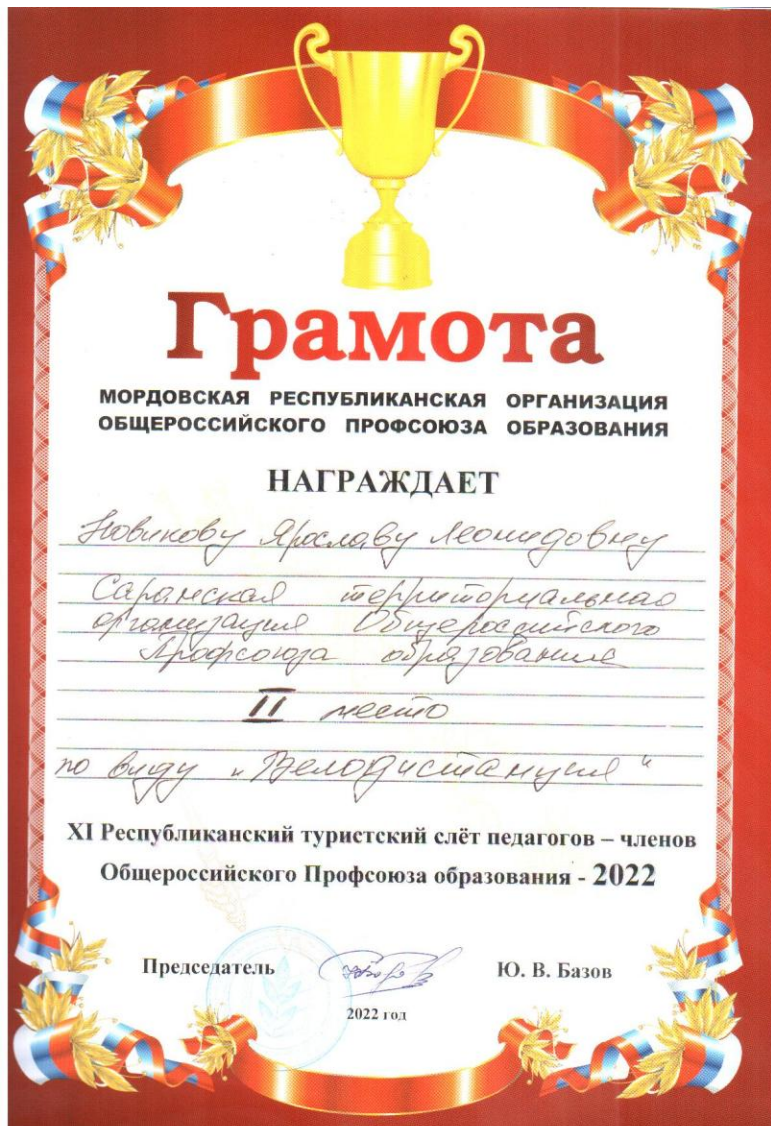 Грамота
МОРДОВСКАЯ РЕСПУБЛИКАНСКАЯ ОРГАНИЗАЦИЯ
ОБЩЕРОССИЙСКОГО ПРОФСОЮЗА ОБРАЗОВАНИЯ
НАГРАЖДАЕТ
Новикову Ярославу Леонидовну
Саранская территориальная
организация Общероссийского
Профсоюза образования
II место
по виду "Велодистанция"
XI Республиканский туристский слёт педагогов – членов
Общероссийского Профсоюза образования - 2022
Председатель Ю. В. Базов
2022 год